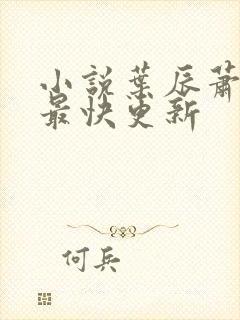 小説葉辰蕭
最快更新
何兵